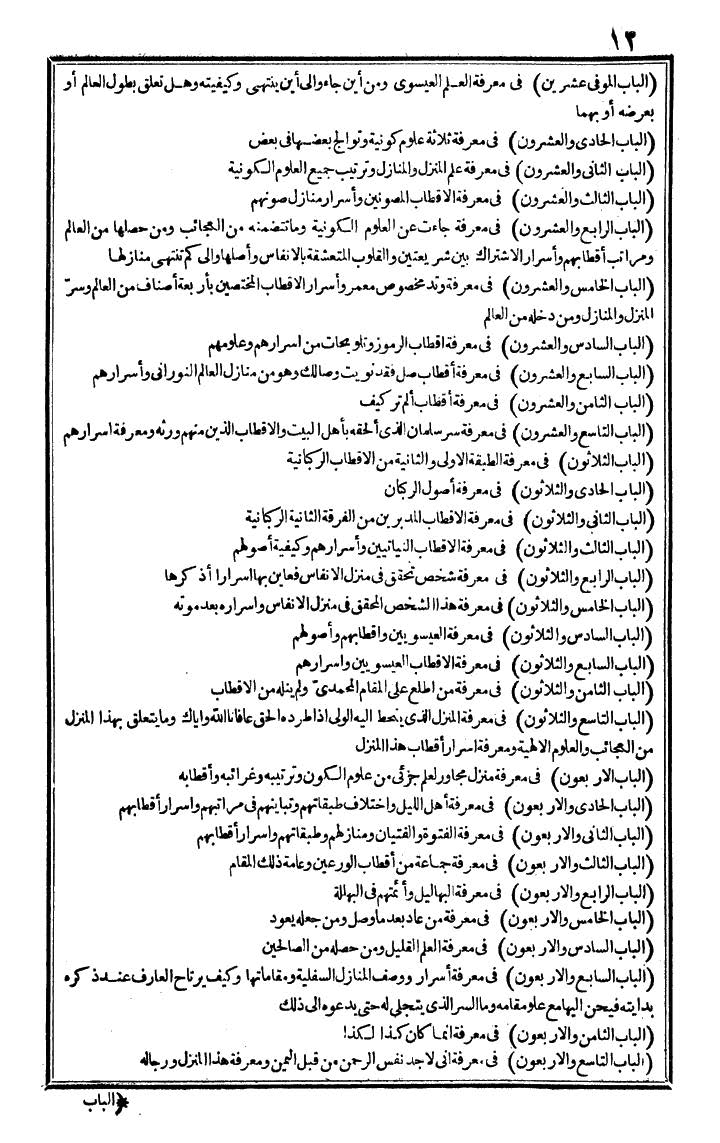 ١٢
(الباب الموفى عشرين) فى معرفة العلم العيسوى ومن أين جاء والى أين ينتهى وكيفيته وهل تعلق بطول العالم أو
بعرضه أو بهما
(الباب الحادى والعشرون) فى معرفة ثلاثة علوم كونية وتوالج بعضها فى بعض
(الباب الثانى والعشرون) فى معرفة علم المنزل والمنازل وترتيب جميع العلوم الكونية
(الباب الثالث والعشرون) فى معرفة الاقطاب المصونين وأسرار منازل صونهم
(الباب الرابع والعشرون) فى معرفة جاءت عن العلوم الكونية وما تتضمنه من العجائب ومن حصلها من العالم
ومراتب أقطابهم وأسرار الاشتراك بين شريعتين والقلوب المتعشقة بالانفاس وأصلها والى كم تنتهى منازلها
(الباب الخامس والعشرون) فى معرفة وتد مخصوص معمر وأسرار الاقطاب المختصين بأربعة أصناف من العالم وسرّ
المنزل والمنازل ومن دخله من العالم
(الباب السادس والعشرون) فى معرفة اقطاب الرموز وتلويحات من اسرارهم وعلومهم
(الباب السابع والعشرون) فى معرفة أقطاب صل فقد نويت وصالك وهو من منازل العالم النورانى وأسرارهم
(الباب الثامن والعشرون) فى معرفة أقطاب ألم تركيف
(الباب التاسع والعشرون) فى معرفة سر سلمان الذى ألحقه بأهل البيت والاقطاب الذين منهم ورثه ومعرفة اسرارهم
(الباب الثلاثون) فى معرفة الطبقة الاولى والثانية من الاقطاب الركبانية
(الباب الحادى والثلاثون) فى معرفة أصول الركبان
(الباب الثانى والثلاثون) فى معرفة الاقطاب المدبرين من الفرقة الثانية الركبانية
(الباب الثالث والثلاثون) فى معرفة الاقطاب النياتيين وأسرارهم وكيفية أصولهم
(الباب الرابع والثلاثون) فى معرفة شخص تحقق فى منزل الانفاس فعاين بها اسرارا أذكرها
(الباب الخامس والثلاثون) فى معرفة هذا الشخص المحقق فى منزل الانفاس واسراره بعد موته
(الباب السادس والثلاثون) فى معرفة العيسويين واقطابهم وأصولهم
(الباب السابع والثلاثون) فى معرفة الاقطاب العيسويين واسرارهم
(الباب الثامن والثلاثون) فى معرفة من اطلع على المقام المحمدىّ ولم ينله من الاقطاب
(الباب التاسع والثلاثون) فى معرفة المنزل الذى ينحط اليه الولى اذا طرده الحق عافانا الله واياك وما يتعلق بهذا المنزل
من العجائب والعلوم الالهية ومعرفة اسرار أقطاب هذا المنزل
(الباب الاربعون) فى معرفة منزل مجاور لعلم جزئى من علوم الكون وترتيبه وغرائبه وأقطابه
(الباب الحادى والاربعون) فى معرفة أهل الليل واختلاف طبقاتهم وتباينهم فى مراتبهم واسرار أقطابهم
(الباب الثانى والاربعون) فى معرفة الفتوة والفتيان ومنازلهم وطبقاتهم واسرار أقطابهم
(الباب الثالث والاربعون) فى معرفة جماعة من أقطاب الورعين وعامة ذلك المقام
(الباب الرابع والاربعون) فى معرفة البهاليل وأئمتهم فى البهللة
(الباب الخامس والاربعون) فى معرفة من عاد بعد ما وصل ومن جعله يعود
(الباب السادس والاربعون) فى معرفة العلم القليل ومن حصله من الصالحين
(الباب السابع والاربعون) فى معرفة أسرار ووصف المنازل السفلية ومقاماتها وكيف يرتاح العارف عند ذكره
بدايته فيحن اليها مع علو مقامه وما السر الذى يتجلى له حتى يدعوه الى ذلك
(الباب الثامن والاربعون) فى معرفة انما كان كذا لكذا
(الباب التاسع والاربعون) فى معرفة انى لاجد نفس الرحمن من قبل اليمن ومعرفة هذا المنزل ورجاله
(الباب